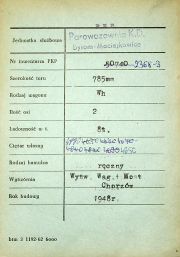 Jednostka służbowa
Parowozownia K.D.
Bytom-Maciejkowice
Nr inwentarza PKP 9368-3
Szerokość toru 785mm
Rodzaj wagonu Wh
Ilość osi 2
Ładowność w t. 8t.
Ciężar własny
Rodzaj hamulca ręczny
Wytwórnia Wytw. Wag. i Most
Chorzów
Rok budowy 1948r.